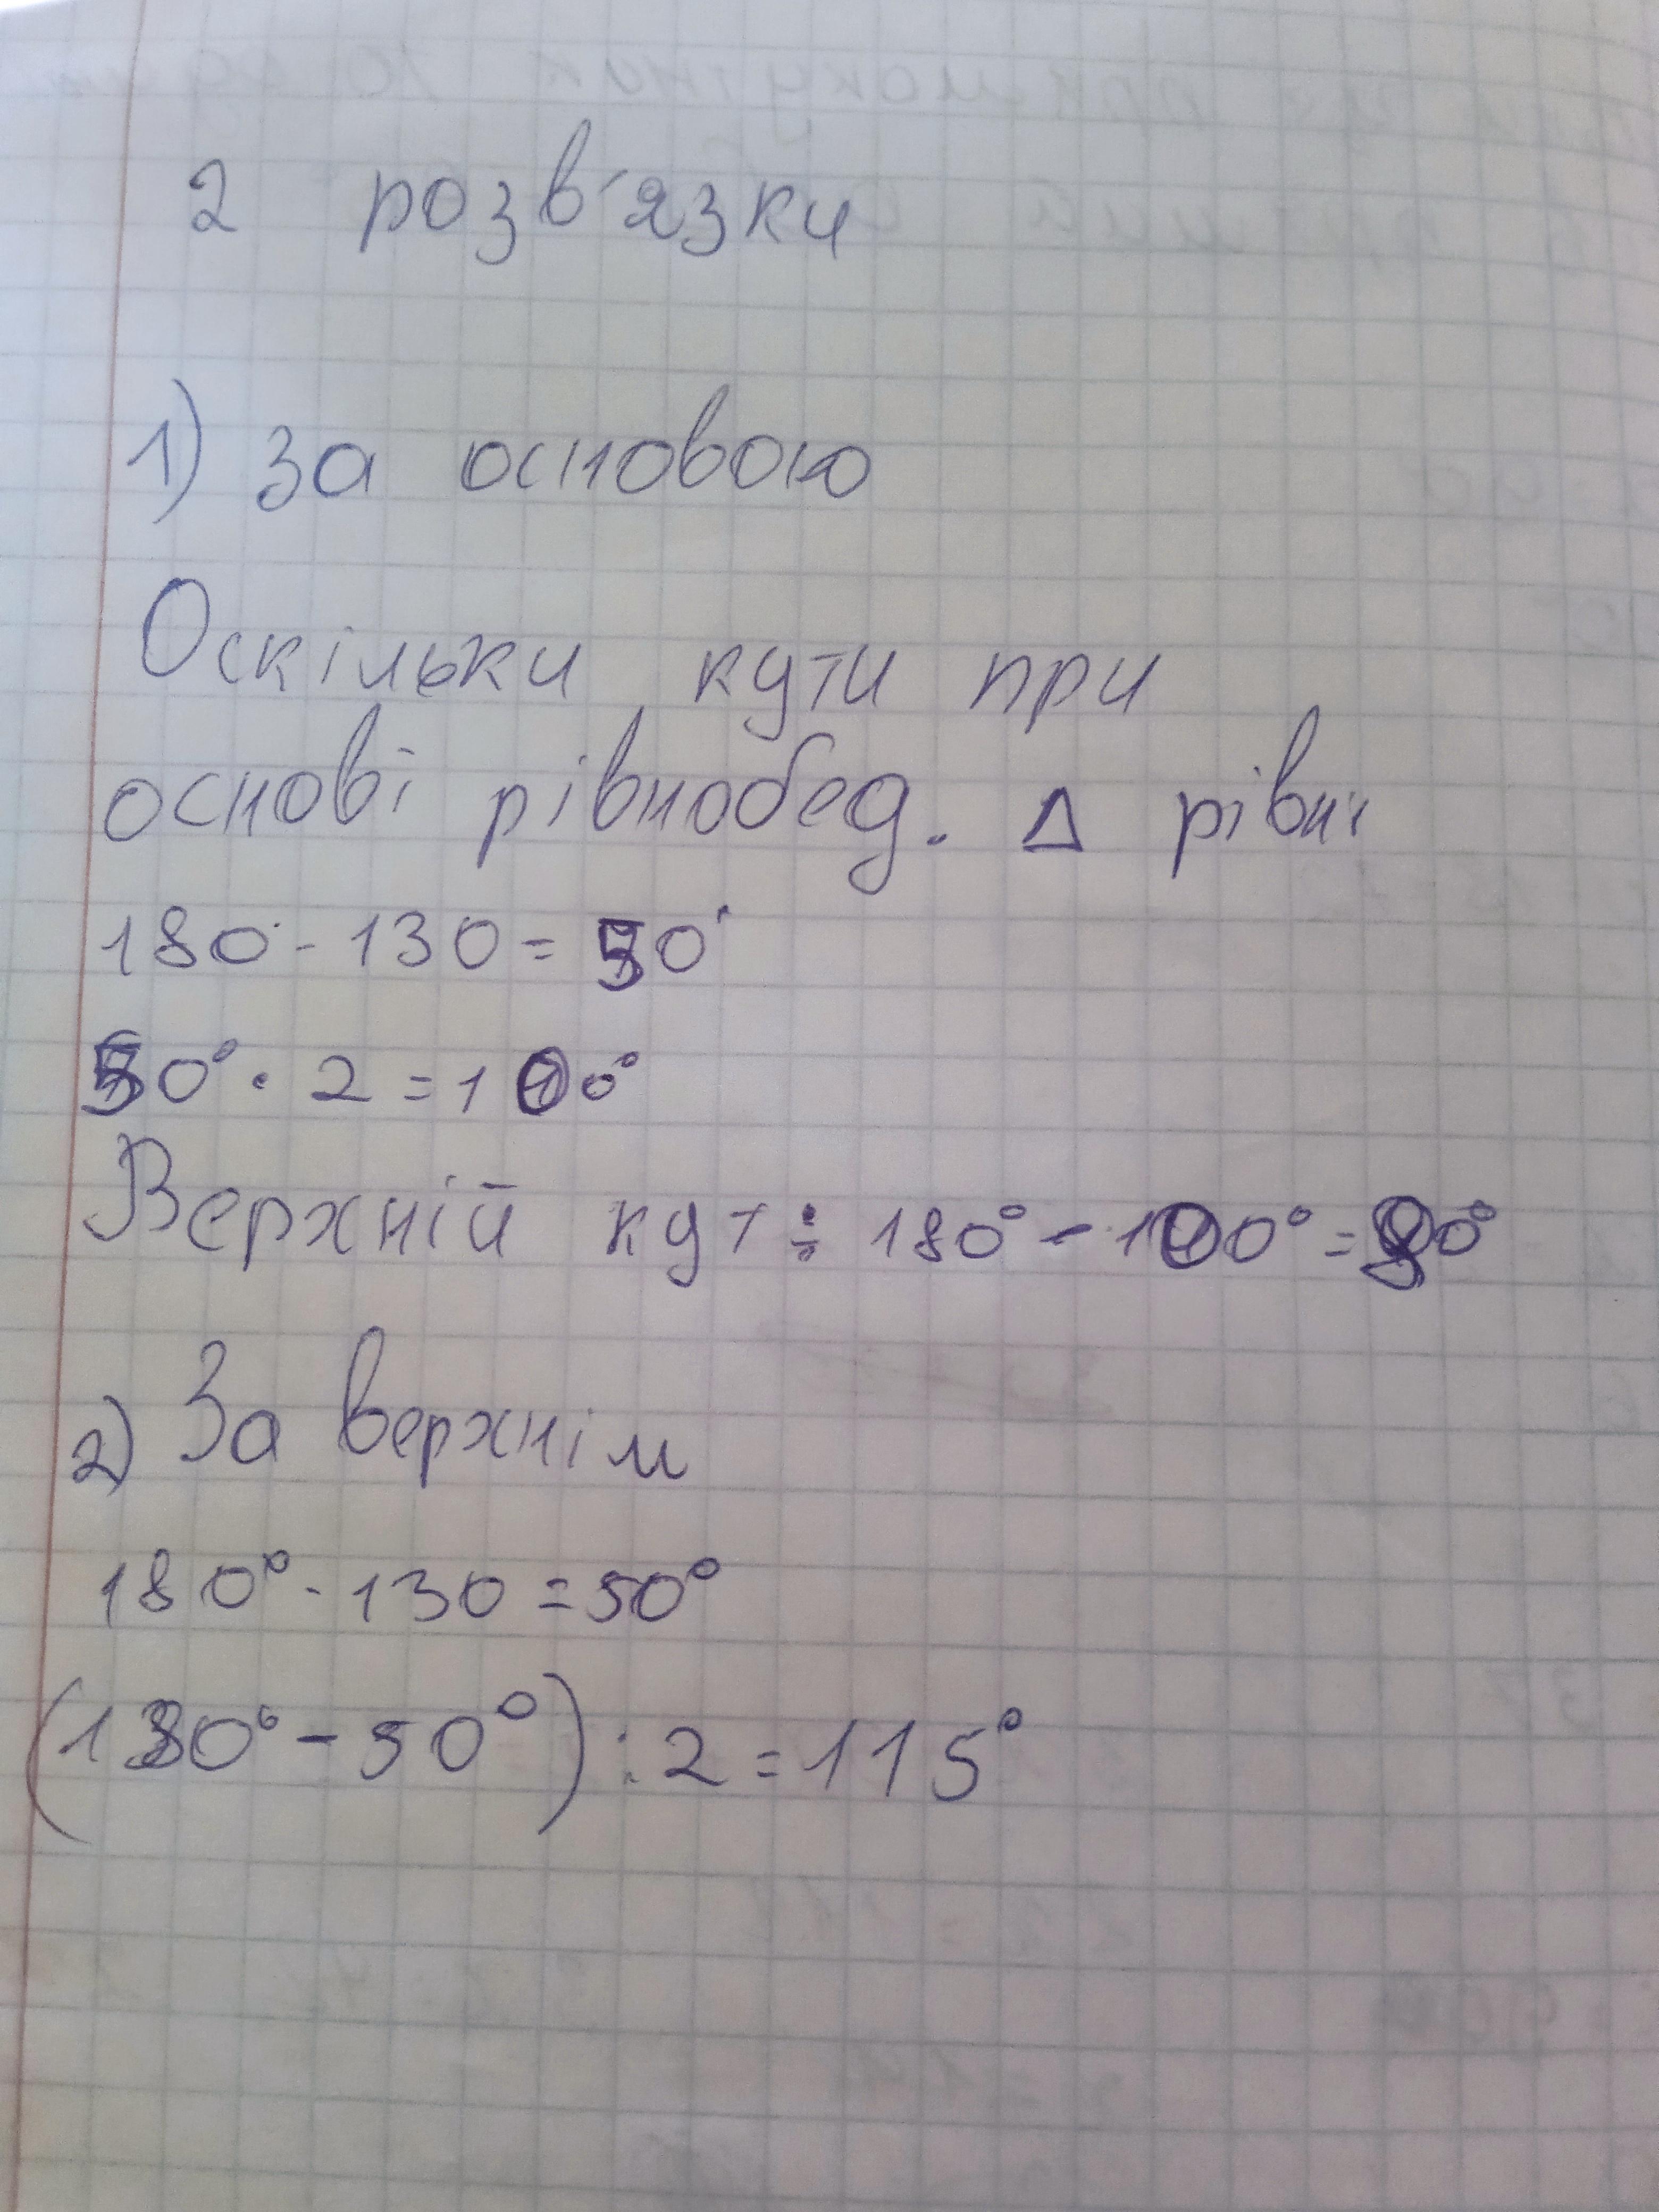 2 розв'язки
1) за основою
Оскільки кути при
основі рівнобед. Δ рівні
180° - 130 = 50°
50° · 2 = 100°
Верхній кут: 180° - 100° = 80°
2) За верхнім
180° - 130 = 50°
(180° - 50°) : 2 = 115°